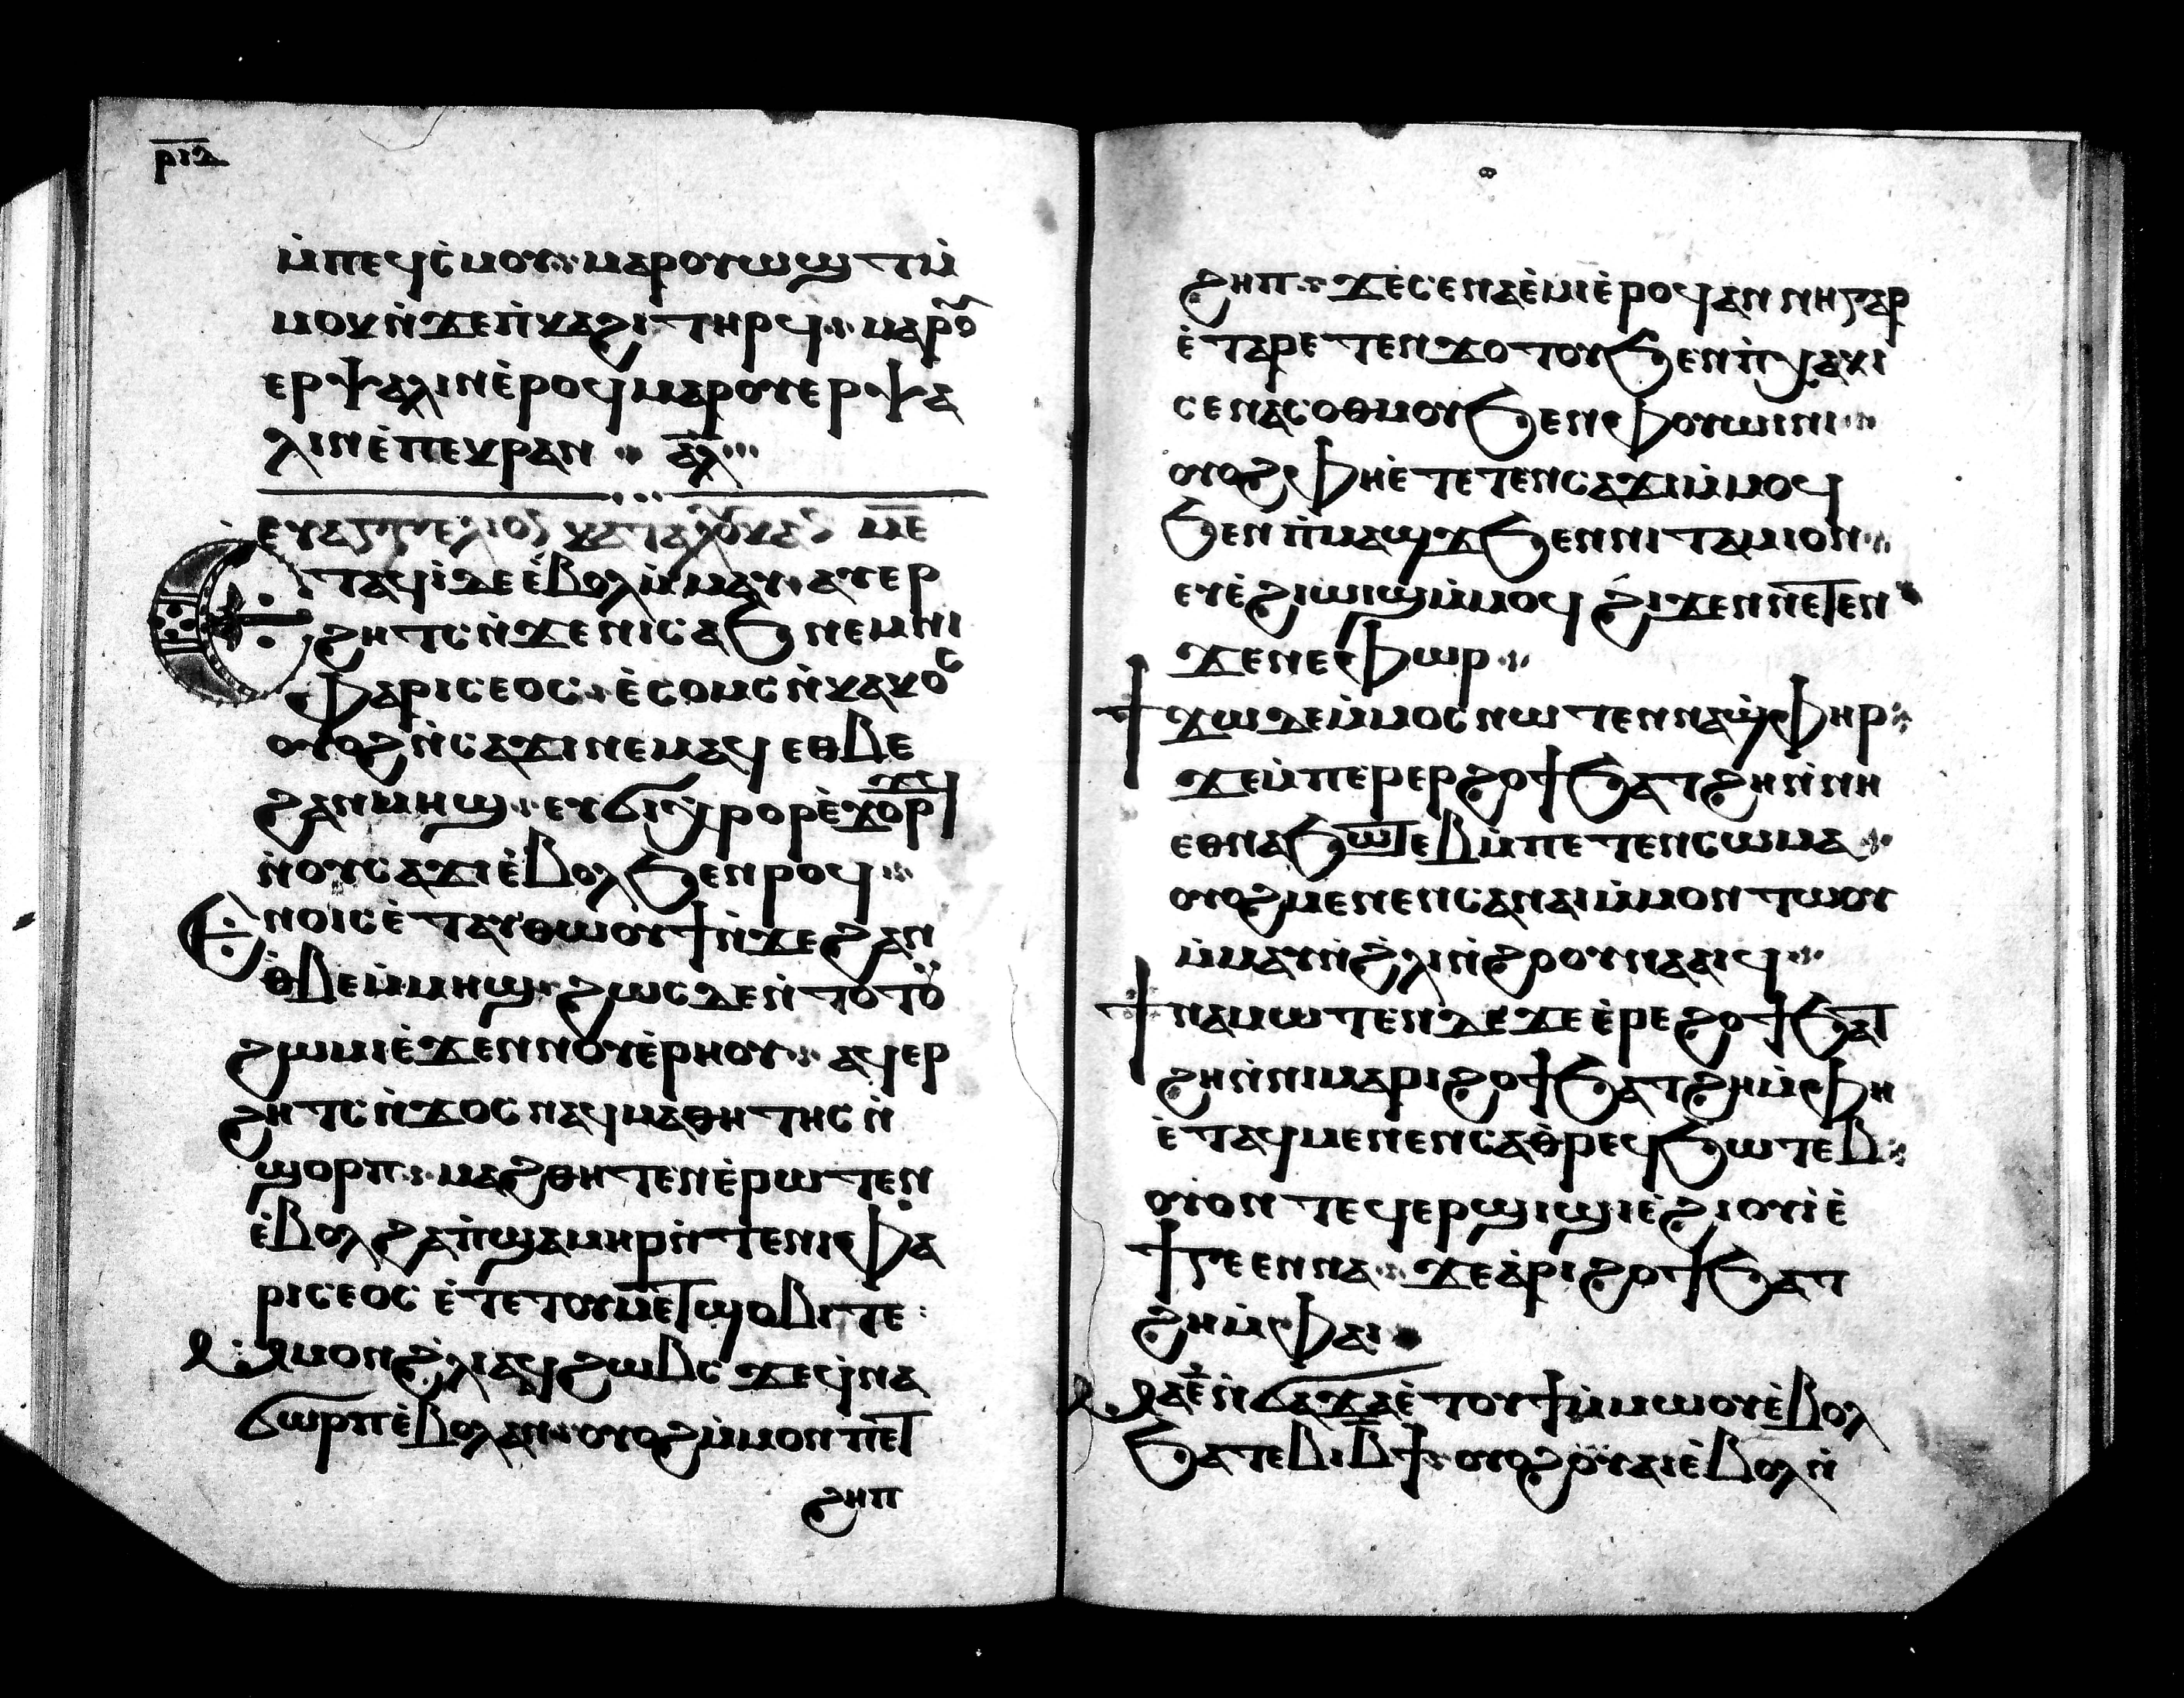 ⲣⲓⲇ
ⲙ̀ⲡⲉϥⲥ̀ⲙⲟⲩ ⲙⲁⲣⲟⲩⲱϣⲧ ⲙ̀
ⲙⲟⲕ ⲛ̀ϫⲉⲡ̀ⲕⲁϩⲓ ⲧⲏⲣϥ ⲙⲁⲣⲟⲩ
ⲉⲣⲯⲁⲗⲓⲛ ⲉ̀ⲣⲟϥ ⲙⲁⲣⲟⲩⲉⲣⲯⲁ
ⲗⲓⲛ ⲉ̀ⲡⲉⲕⲣⲁⲛ ⲁ̅ⲗ̅
ⲉⲩⲁⲅⲅⲉⲗⲓⲟⲛ ⲕⲁⲧⲁ ⲗⲟⲩⲕⲁⲛ ⲙ̅ⲉ̅
Ⲉⲧⲁϥⲓ̀ ⲇⲉ ⲉ̀ⲃⲟⲗ ⲙ̀ⲙⲁⲩ ⲁⲩⲉⲣ
ϩⲏⲧⲥ ⲛ̀ϫⲉⲛⲓⲥⲁϧ ⲛⲉⲙ ⲛⲓ
ⲫⲁⲣⲓⲥⲉⲟⲥ ⲉ̀ⲥⲟⲙⲥ ⲛ̀ⲕⲁⲕⲟⲥ
ⲟⲩⲟϩ ⲛ̀ⲥⲁϫⲓ ⲛⲉⲙⲁϥ ⲉⲑⲃⲉ
ϩⲁⲛⲙⲏϣ ⲉⲩϭⲓⲕⲣⲟϥ ⲉ̀ϫⲟⲣϫ
ⲛ̀ⲟⲩⲥⲁϫⲓ ⲉ̀ⲃⲟⲗϧⲉⲛ ⲣⲱϥ
Ⲉⲛⲟⲓⲥ ⲉ̀ⲧⲁⲩⲑⲱⲟⲩϯ ⲛ̀ϫⲉϩⲁⲛ
ⲑ̀ⲃⲉ ⲙ̀ⲙⲏϣ ϩⲱⲥⲇⲉ ⲛ̀ⲧⲟⲩ
ϩⲱⲙⲓ ⲉ̀ϫⲉⲛ ⲛⲟⲩⲉ̀ⲣⲏⲟⲩ ⲁϥⲉⲣ
ϩⲏⲧⲥ ⲛ̀ϫⲟⲥ ⲛⲁϥⲙⲁⲑⲏⲧⲏⲥ ⲛ̀
ϣⲟⲣⲡ ⲙⲁϩⲑⲏⲧⲉⲛ ⲉ̀ⲣⲱⲧⲉⲛ
ⲉ̀ⲃⲟⲗϩⲁ ⲡ̀ϣⲁⲙⲏⲣ ⲛ̀ⲧⲉⲛⲓⲫⲁ
ⲣⲓⲥⲉⲟⲥ ⲉ̀ⲧⲉ ⲧⲟⲩⲙⲉⲧϣⲟⲃⲓ ⲧⲉ
Ⲙ̀ⲙⲟⲛ ϩ̀ⲗⲓ ⲁϥϩⲱⲃⲥ ϫⲉϥⲛⲁ
ϭⲱⲣⲡ ⲉ̀ⲃⲟⲗ ⲁⲛ ⲟⲩⲟϩ ⲙ̀ⲙⲟⲛ ⲡⲉⲧ
ϩⲏⲡ
ϩⲏⲡ ϫⲉⲥⲉⲛⲁⲉ̀ⲙⲓ ⲉ̀ⲣⲟϥ ⲁⲛ ⲛⲏ ⲅⲁⲣ
ⲉ̀ⲧⲁⲣⲉⲧⲉⲛϫⲟⲧⲟⲩ ϧⲉⲛ ⲡ̀ⲭⲁⲕⲓ
ⲥⲉⲛⲁⲥⲟⲑⲙⲟⲩ ϧⲉⲛ ⲫⲟⲩⲱⲓⲛⲓ
ⲟⲩⲟϩ ⲫⲏ ⲉ̀ⲧⲉⲧⲉⲛⲥⲁϫⲓ ⲙ̀ⲙⲟϥ
ϧⲉⲛ ⲡ̀ⲙⲁϣϫ ϧⲉⲛ ⲛⲓⲧⲁⲙⲓⲟⲛ
ⲉⲩⲉ̀ϩⲓⲱⲓϣ ⲙ̀ⲙⲟϥ ϩⲓϫⲉⲛ ⲛⲉⲧⲉⲛ
ϫⲉⲛⲉⲫⲱⲣ
ϯϫⲱ ⲇⲉ ⲙ̀ⲙⲟⲥ ⲛⲱⲧⲉⲛ ⲛⲁϣ̀ⲫⲏⲣ
ϫⲉⲙ̀ⲡⲉⲣⲉⲣϩⲟϯ ϧⲁⲧϩⲏ ⲛ̀ⲛⲏ
ⲉⲑⲛⲁϧⲱⲧⲉⲃ ⲙ̀ⲡⲉⲧⲉⲛⲥⲱⲙⲁ
ⲟⲩⲟϩ ⲙⲉⲛⲉⲛⲥⲁⲛⲁⲓ ⲙ̀ⲙⲟⲛ ⲧⲱⲟⲩ
ⲙ̀ⲙⲁⲩ ⲛ̀ϩ̀ⲗⲓ ⲛ̀ϩⲟⲩⲟ ⲛⲁⲁⲓϥ
ϯⲛⲁⲙⲱⲧⲉⲛ ⲇⲉ ϫⲉ ⲉ̀ⲣⲉϩⲟϯ ϧⲁⲧ
ϩⲏ ⲛ̀ⲛⲓⲙ ⲁⲣⲓϩⲟϯ ϧⲁⲧϩⲏ ⲙ̀ⲫⲏ
ⲉ̀ⲧⲁϥⲙⲉⲛⲉⲛⲥⲁ ⲑ̀ⲣⲉϥϧⲱⲧⲉⲃ
ⲟⲩⲟⲛⲧⲉϥ ⲉⲣϣⲓϣⲓ ⲉ̀ϩⲓⲟⲩⲓ̀ ⲉ̀
ϯⲅⲉⲉⲛⲛⲁ ϫⲉ ⲁ̀ⲣⲓϩⲟϯ ϧⲁⲧ
ϩⲏ ⲙ̀ⲫⲁⲓ
Ⲙⲏ ⲉ̅ ⲛ̀ϭⲁϫ ⲁⲉ̀ⲧⲟⲩϯ ⲙ̀ⲙⲱⲟⲩ ⲉ̀ⲃⲟⲗ
ϧⲁ ⲧⲉⲃⲓ ⲃ̅ϯ ⲟⲩⲟϩ ⲟⲩⲁⲓ ⲉ̀ⲃⲟⲗ ⲛ̀